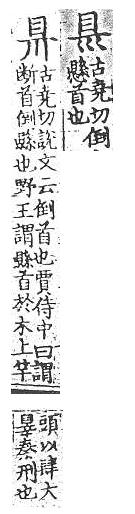 県
古堯切倒
縣首也
県
古堯切說文云倒首也賈侍中曰謂
断首倒縣也野王謂縣首於木上竿
頭以肆大
辠秦刑也